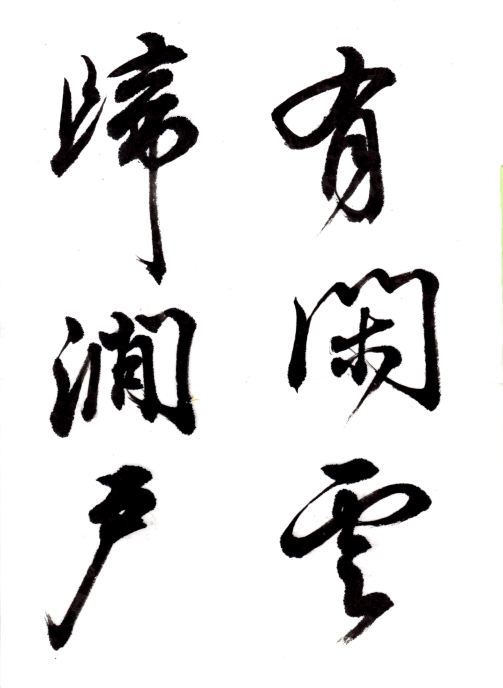 有閑雲
歸澗戶